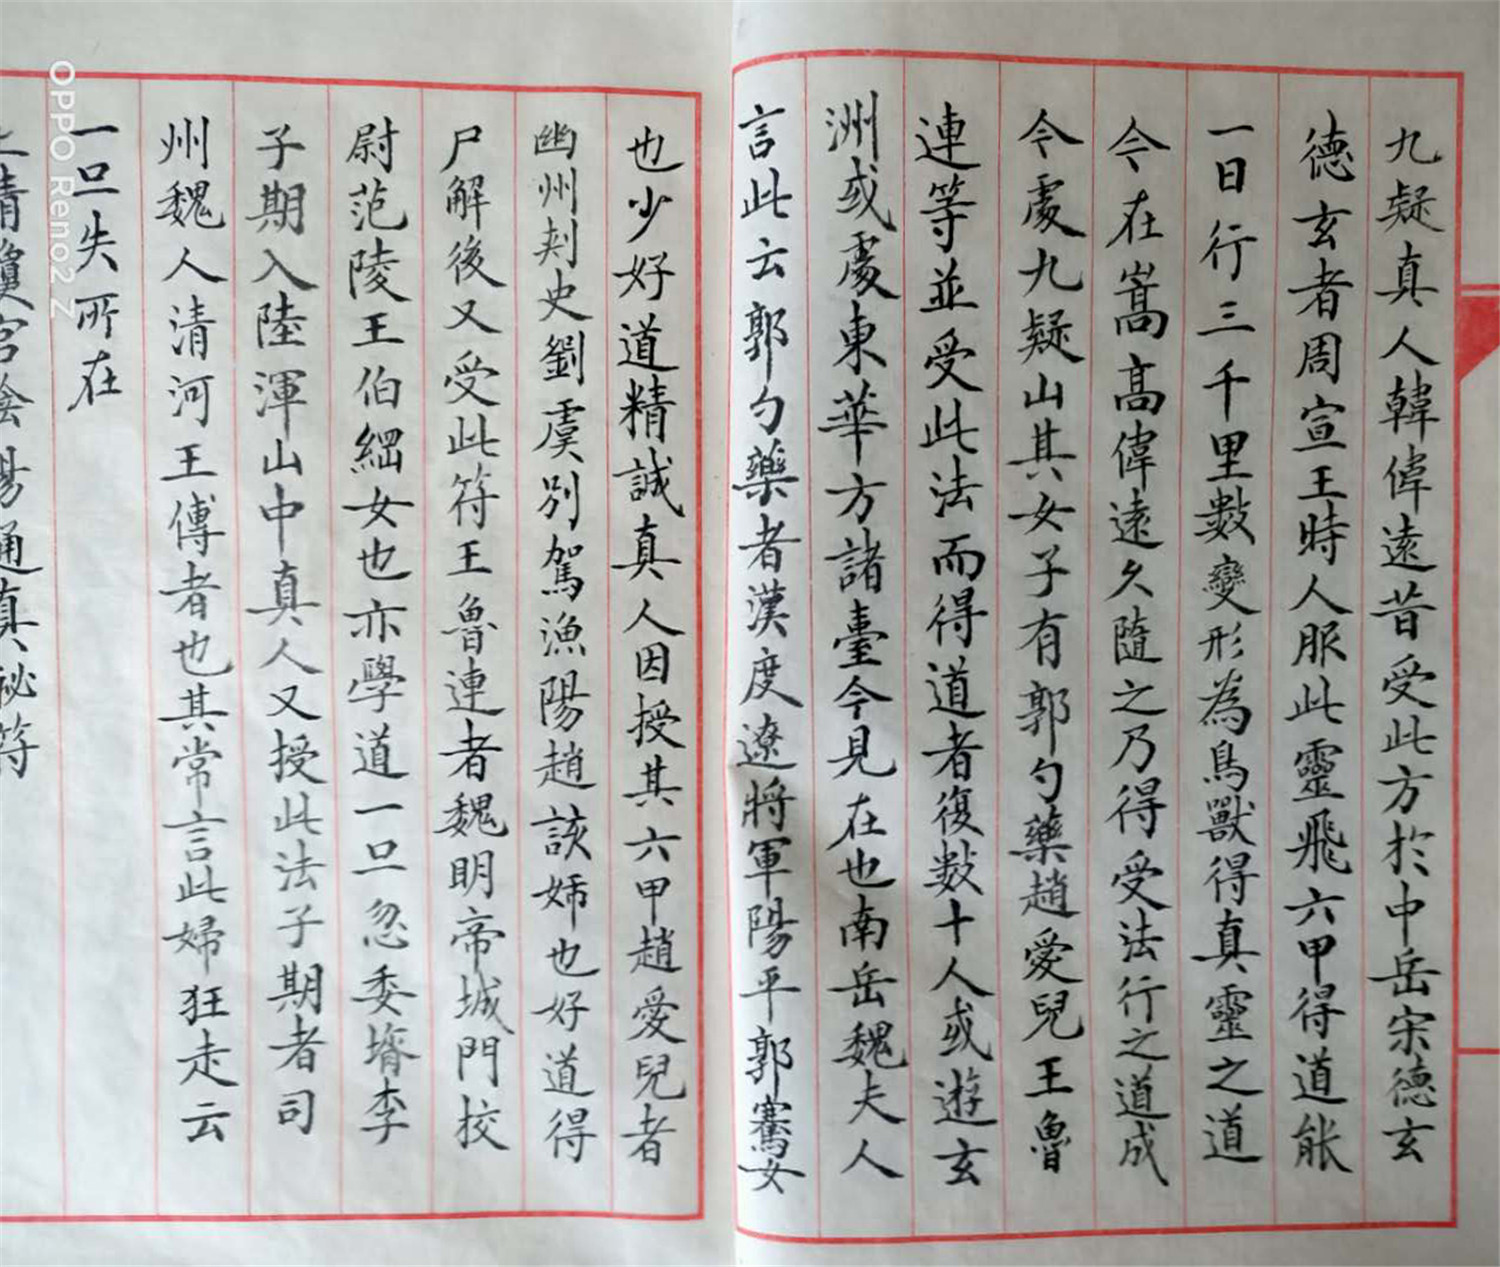 九疑真人韓偉遠昔受此方於中岳宋德玄
德玄者周宣王時人服此靈飛六甲得道能
一日行三千里數變形為鳥獸得真靈之道
今在嵩高偉遠久隨之乃得受法行之道成
今處九疑山其女子有郭勺藥趙愛兒王魯
連等並受此法而得道者復數十人或遊玄
洲或處東華方諸臺今見在也南岳魏夫人
言此云郭勺藥者漢度遼將軍陽平郭騫女
也少好道精誠真人因授其六甲趙愛兒者
幽州刾史劉虞別駕漁陽趙該姊也好道得
尸解後又受此符王魯連者魏明帝城門校
尉范陵王伯綱女也亦學道一旦忽委壻李
子期入陸渾山中真人又授此法子期者司
州魏人清河王傅者也其常言此婦狂走云
一旦失所在
上清瓊宮陰陽通真秘符
OPPO Reno2 Z